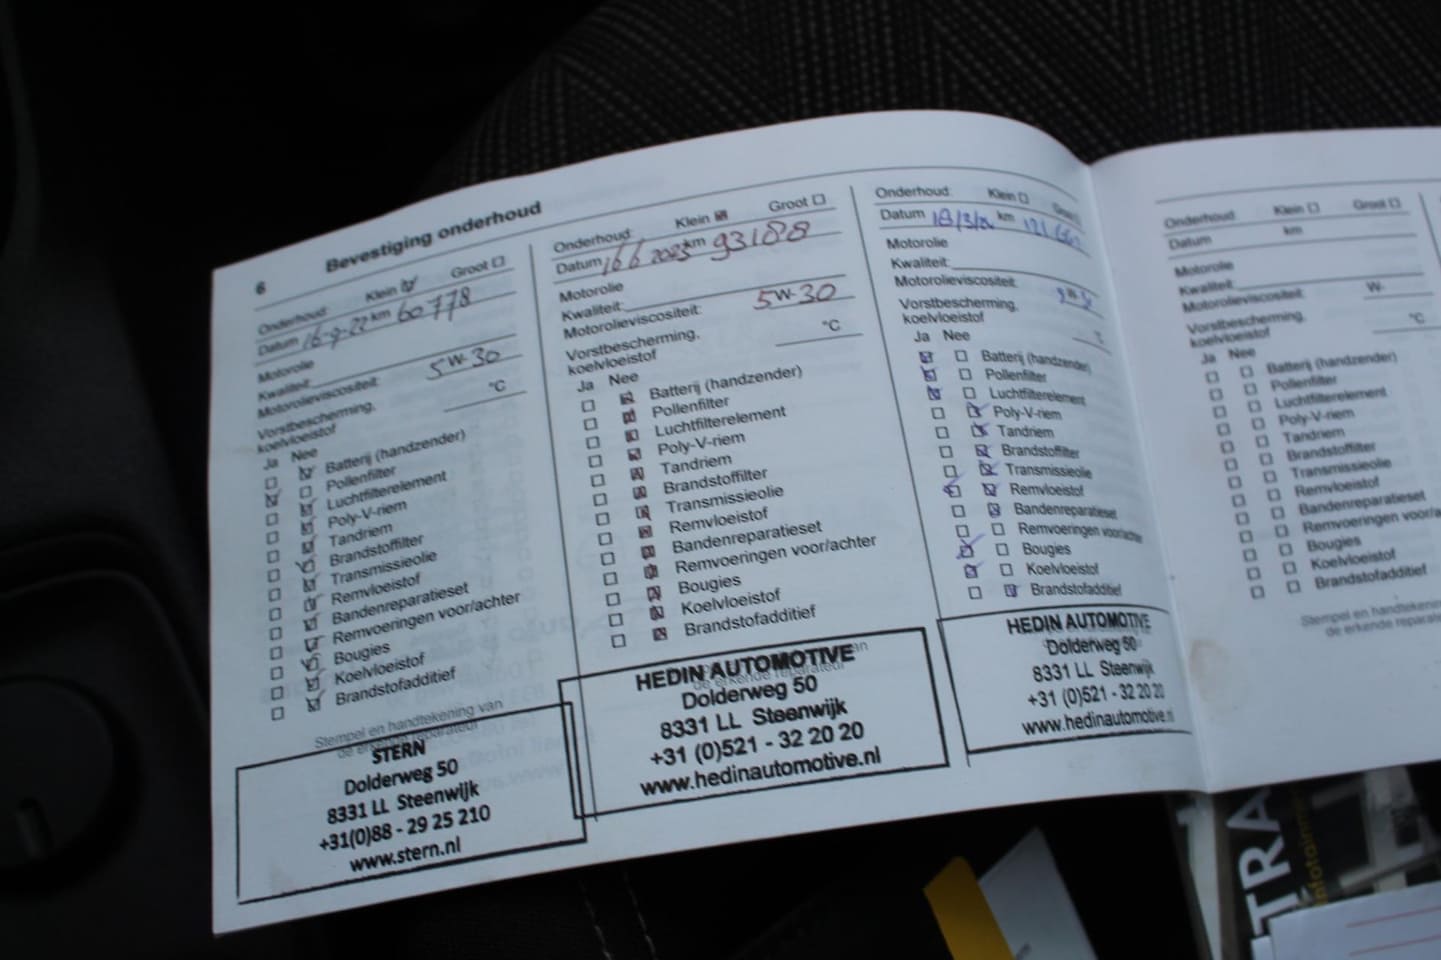 6
Bevestiging onderhoud
Onderhoud: Klein Groot
Datum 16-9-22 km 60778
Motorolie
Kwaliteit:
Motorolieviscositeit: 5W-30
Vorstbescherming, °C
koelvloeistof
Ja Nee
Batterij (handzender)
Pollenfilter
Luchtfilterelement
Poly-V-riem
Tandriem
Brandstoffilter
Transmissieolie
Remvloeistof
Bandenreparatieset
Remvoeringen voor/achter
Bougies
Koelvloeistof
Brandstofadditief
Stempel en handtekening van
de erkende reparateur
STERN
Dolderweg 50
8331 LL Steenwijk
+31(0)88 - 29 25 210
www.stern.nl
Onderhoud: Klein Groot
Datum 16 6 2023 km 93188
Motorolie
Kwaliteit:
Motorolieviscositeit: 5W-30
Vorstbescherming, °C
koelvloeistof
Ja Nee
Batterij (handzender)
Pollenfilter
Luchtfilterelement
Poly-V-riem
Tandriem
Brandstoffilter
Transmissieolie
Remvloeistof
Bandenreparatieset
Remvoeringen voor/achter
Bougies
Koelvloeistof
Brandstofadditief
de erkende reparateur
HEDIN AUTOMOTIVE
Dolderweg 50
8331 LL Steenwijk
+31 (0)521 - 32 20 20
www.hedinautomotive.nl
Onderhoud: Klein Groot
Datum km
Motorolie
Kwaliteit:
Motorolieviscositeit:
Vorstbescherming, °C
koelvloeistof
Ja Nee
Batterij (handzender)
Pollenfilter
Luchtfilterelement
Poly-V-riem
Tandriem
Brandstoffilter
Transmissieolie
Remvloeistof
Bandenreparatieset
Remvoeringen voor/achter
Bougies
Koelvloeistof
Brandstofadditief
HEDIN AUTOMOTIVE
Dolderweg 50
8331 LL Steenwijk
+31 (0)521 - 32 20 20
www.hedinautomotive.nl
Onderhoud: Klein Groot
Datum km
Motorolie
Kwaliteit:
Motorolieviscositeit: W-
Vorstbescherming, °C
koelvloeistof
Ja Nee
Batterij (handzender)
Pollenfilter
Luchtfilterelement
Poly-V-riem
Tandriem
Brandstoffilter
Transmissieolie
Remvloeistof
Bandenreparatieset
Remvoeringen voor/a
Bougies
Koelvloeistof
Brandstofadditief
Stempel en handtekening
de erkende reparate
TRA
Infotainm